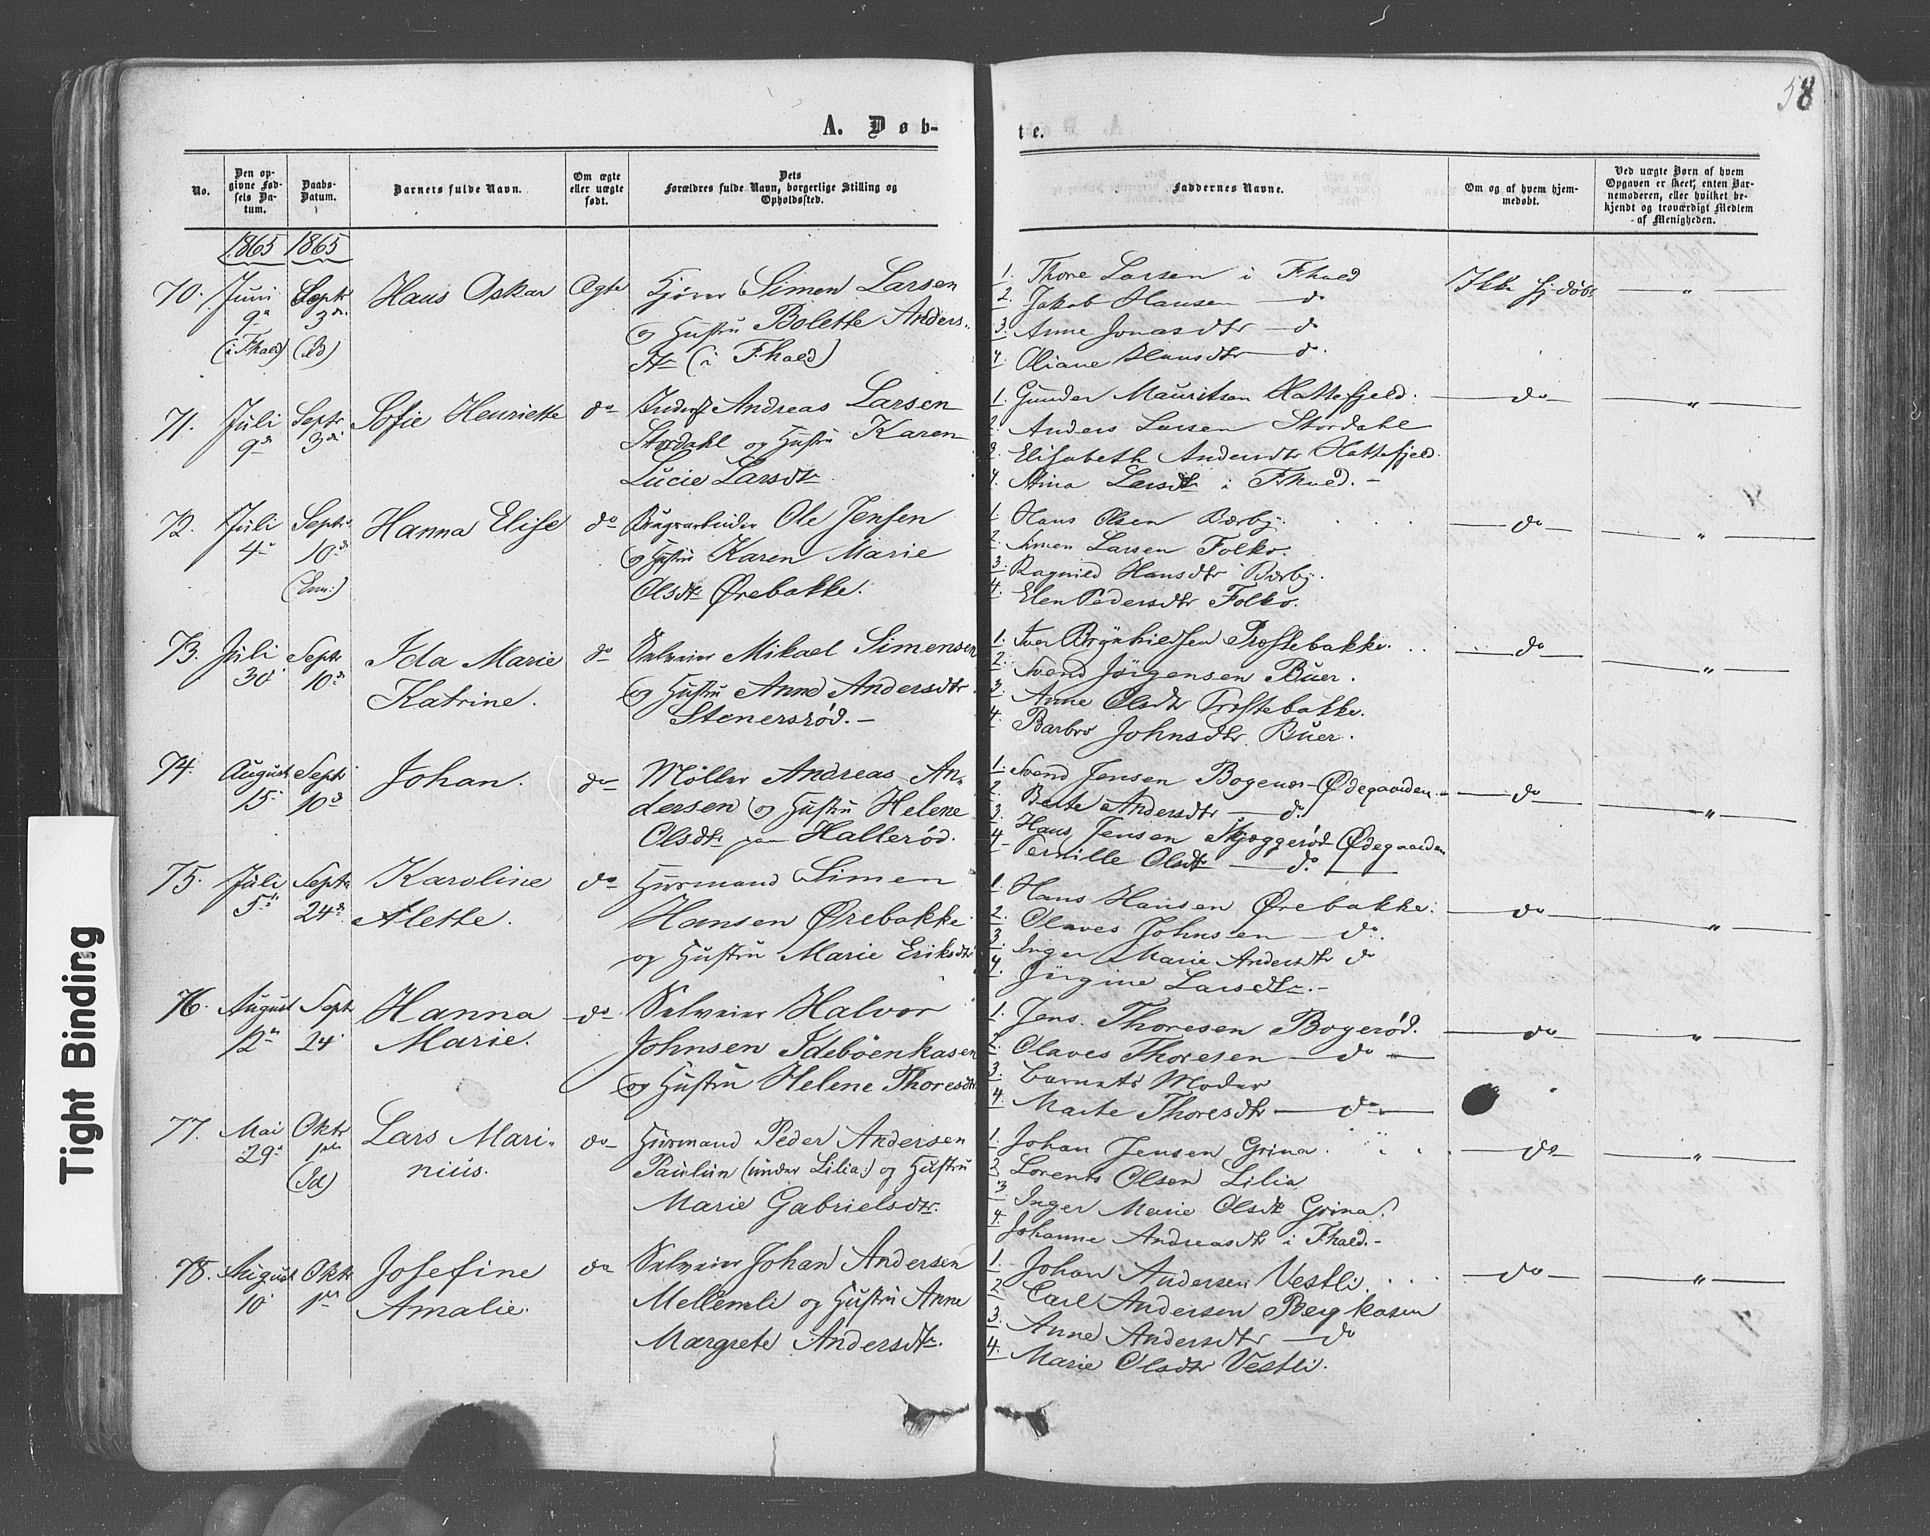 58
A. Døb-
te.
No.
Den op-
givne Fød-
sels Da-
tum.
Daabs-
Datum.
Barnets fulde Navn.
Om ægte
eller uægte
født.
Dets
Forældres fulde Navn, borgerlige Stilling og
Opholdssted.
Faddernes Navne.
Om og af hvem hjem-
medøbt.
Ved uægte Børn af hvem
Opgaven er skeet, enten Bar-
nemoderen, eller hvilket be-
kjendt og troværdigt Medlem
af Menigheden.
1865 1865
70. Juni Septr Hans Oskar Ægte Kjører Simen Larsen
9de 3de og Hustru Bolette Anders-
(i Fhald) (Id) dtr (i Fhald)
1. Thore Larsen i Fhald Ikke hj.døbt "
2. Jakob Hansen do
3. Anne Jonasdtr do
4. Oliane Hansdtr do
71. Juli Septr Sofie Henriette do Inderst Andreas Larsen
9de 3de Stordahl og Hustru Karen
Lucie Larsdtr.
1. Gunder Mauritsen Hattefjeld. do "
2. Anders Larsen Stordahl
3. Elisabeth Andersdtr Hattefjeld.
4. Stina Larsdtr i Fhald.-
72. Juli Septr Hanna Elise do Brugsarbeider Ole Jensen
4de 10de og Hustru Karen Marie
(Enn:) Olsdtr Ørebakke.
1. Hans Olsen Bærby. do "
2. Simen Larsen Folko.
3. Ragnild Hansdtr Bærby.
4. Elen Pedersdtr Folko.
73. Juli Septr Ida Marie do Selveier Mikael Simensen
30 10de Katrine. og Hustru Anne Andersdtr
Stenersrød.-
1. Iver Brynhildsen Præstebakke. do "
2. Svend Jörgensen Buer.
3. Anne Olsdtr Præstebakke.
4. Barbro Johnsdtr Buer.
74. August Septr Johan. do Møller Andreas An-
15. 10de dersen og Hustru Helene
Olsdtr paa Hallerød.
1. Svend Jensen Bogenæs-Ødegaarden. do "
2. Berte Andersdtr do.
3. Hans Jensen Skjeggerød-Ødegaarden
4. Pernille Olsdtr do.
75. Juli Septr Karoline do Husmand Simen
5te 24de Alette. Hansen Ørebakke
og Hustru Marie Eriksdtr
1. Hans Hansen Ørebakke. do "
2. Olaves Johnsen do.
3. Inger Marie Andersdtr do
4. Jörgine Larsdtr.-
76. August Septr Hanna do Selveier Halvor
12te 24 Marie. Johnsen Idebøenkasen
og Hustru Helene Thoresdtr
1. Jens Thoresen Bogerød. do "
2. Olaves Thoresen do
3. Barnets Moder
4. Marte Thoresdtr do
77. Mai Oktr Lars Mari- do Husmand Peder Andersen
29. 1ste nius. Paulun (under Lilia:) og Hustru
(Id) Marie Gabrielsdtr.
1. Johan Jensen Grina. do "
2 Lorents Olsen Lilia
3. Inger Marie Olsdtr Grina.
4. Johanne Andreasdtr i Fhald.-
78. August Oktr Josefine do Selveier Johan Andersen
10 1ste Amalie. Mellemli og Hustru Anne
Margrete Andersdtr.
1. Johan Andersen Vestli. do "
2 Carl Andersen Bergkasen
3. Anne Andersdtr do
4. Marie Olsdtr Vestli.
Tight Binding